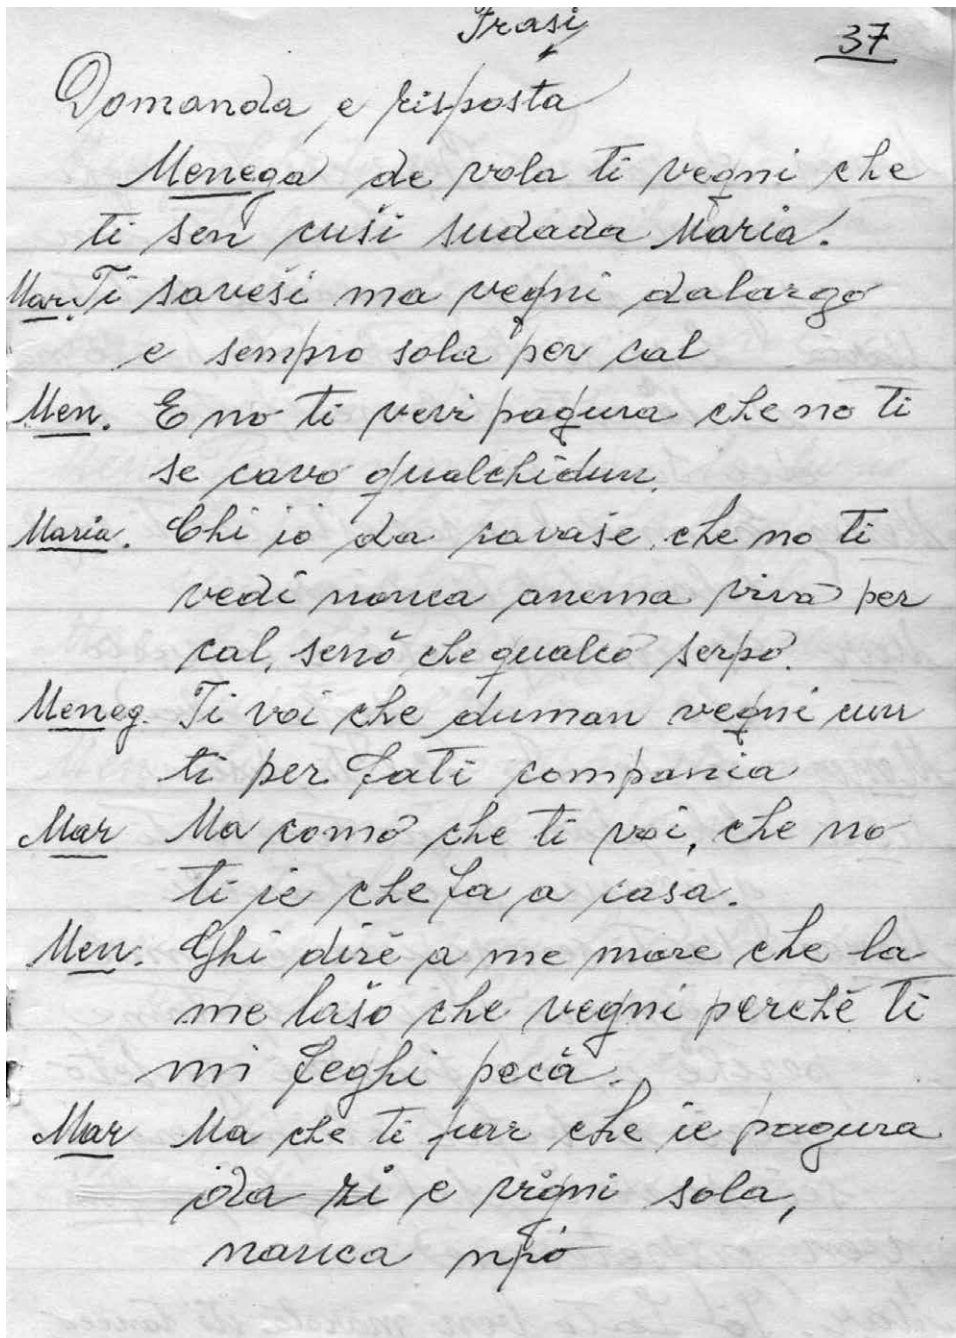 Frasi
37
Domanda e risposta
Menega de vola ti vegni che
ti sen cuši sudada Maria.
Mar. Ti saveši ma vegni dalargo
e sempro sola per cal
Men. E no ti veri pagura che no ti
se cavo qualchidun.
Maria. Chi iò da cavaše, che no ti
vedi nonca anema viva per
cal, senò che qualco serpo.
Meneg. Ti voi che duman vegni cun
ti per fati compania
Mar Ma comò che ti voi, che no
ti ie che fa a casa.
Men. Ghi dirè a me more che la
me lašo che vegni perchè ti
mi feghi pecà.
Mar Ma che ti par che ie pagura
da zi e vigni sola,
nanca